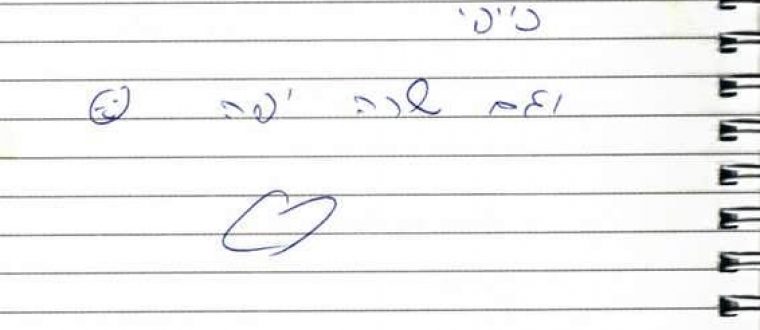 כייפי
וגם שרה יפה ☺